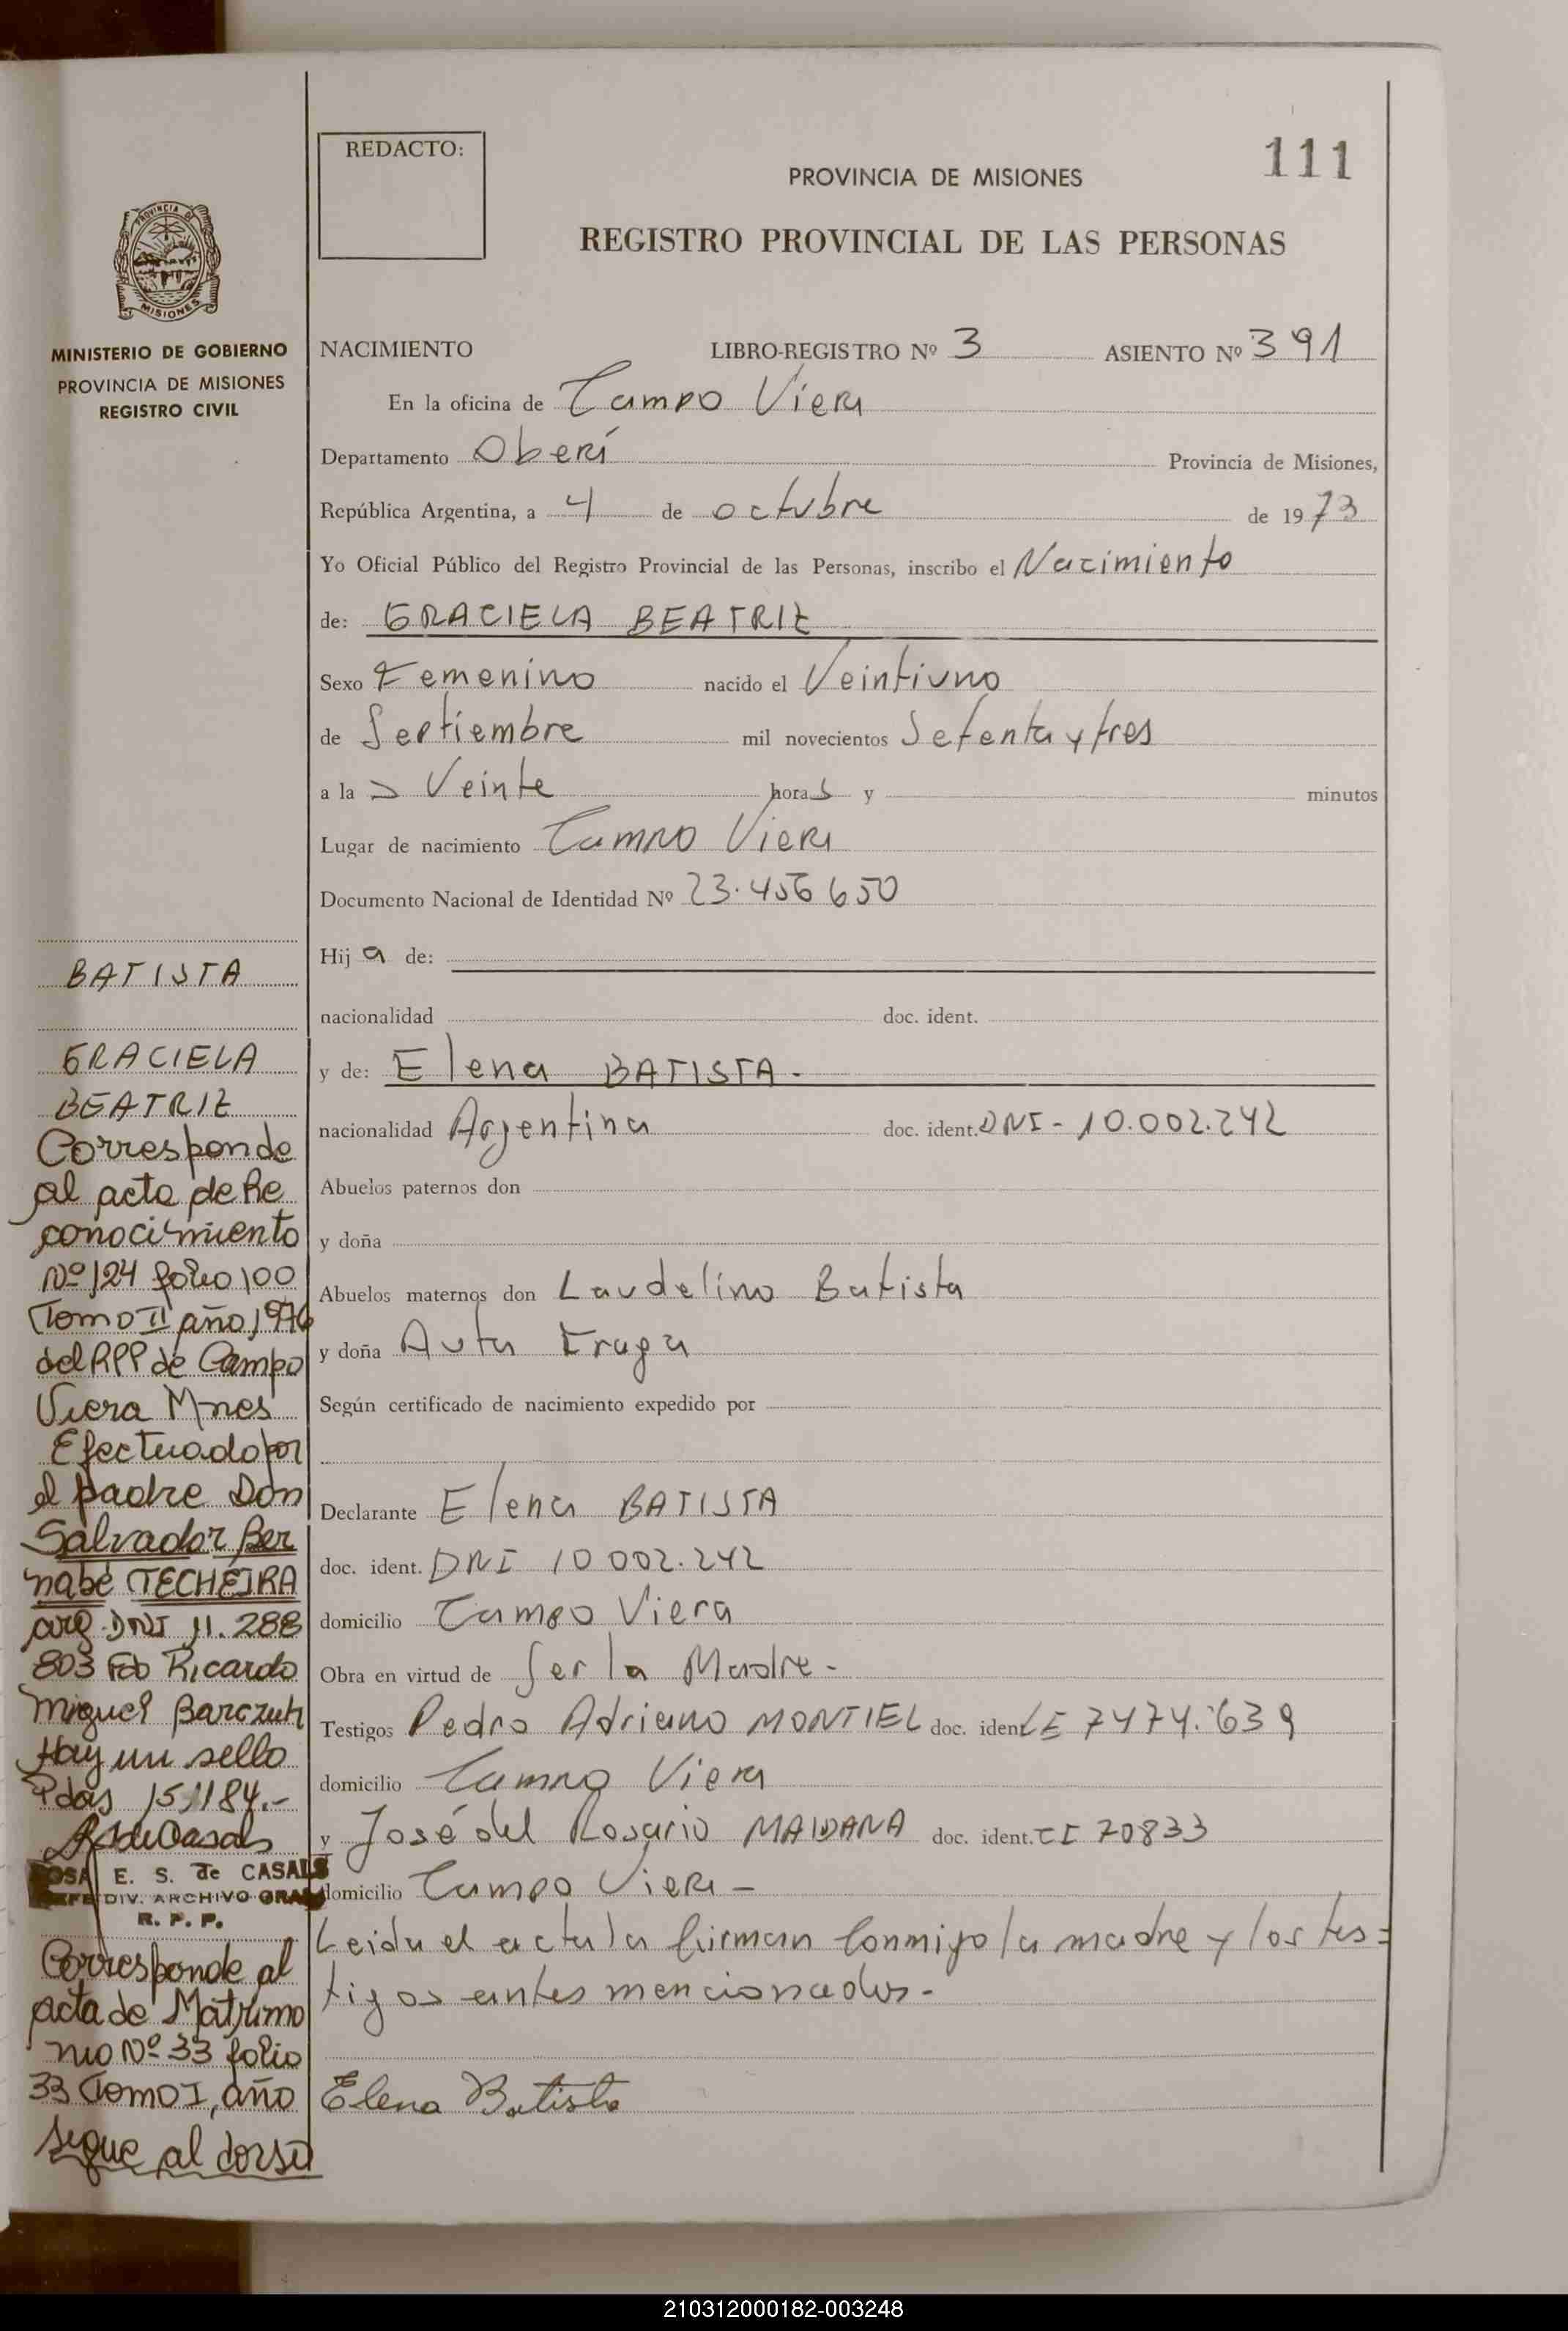 REDACTO:
PROVINCIA DE MISIONES
111
REGISTRO PROVINCIAL DE LAS PERSONAS
PROVINCIA DE
MISIONES
MINISTERIO DE GOBIERNO
PROVINCIA DE MISIONES
REGISTRO CIVIL
NACIMIENTO LIBRO-REGISTRO Nº 3 ASIENTO Nº 391
En la oficina de Campo Viera
Departamento Oberí Provincia de Misiones,
República Argentina, a 4 de octubre de 1973
Yo Oficial Público del Registro Provincial de las Personas, inscribo el Nacimiento
de: GRACIELA BEATRIZ
Sexo Femenino nacido el Veintiuno
de Septiembre mil novecientos Setenta y tres
a la s Veinte horas y minutos
Lugar de nacimiento Campo Viera
Documento Nacional de Identidad Nº 23.456 650
Hij a de:
nacionalidad doc. ident.
y de: Elena BATISTA.
nacionalidad Argentina doc. ident. DNI - 10.002.242
Abuelos paternos don
y doña
Abuelos maternos don Laudelino Batista
y doña Auta Fraga
Según certificado de nacimiento expedido por
Declarante Elena BATISTA
doc. ident. DNI 10 002.242
domicilio Campo Viera
Obra en virtud de Ser la Madre -
Testigos Pedro Adriano MONTIEL doc. iden LE 7474.639
domicilio Campo Viera
y José del Rosario MAIDANA doc. ident. CI 70833
domicilio Campo Viera -
Leida el acta la firman conmigo la madre y los tes=
tigos antes mencionados -
Elena Batista
BATISTA
GRACIELA
BEATRIZ
Corresponde
al acta de Re
conocimiento
Nº 124 folio 100
Tomo II año 1976
del RPP de Campo
Viera Mnes
Efectuado por
el padre Don
Salvador Ber
nabé TECHEIRA
arg. DNI 11.288
803 Fdo Ricardo
Miguel Barczuk
Hay un sello
Pdas 15/1/84.-
ROSA E. S. de CASALS
JEFE DIV. ARCHIVO GRAL
R. P. P.
Corresponde al
acta de Matrimo
nio Nº 33 folio
33 Tomo I, año
sigue al dorso
210312000182-003248